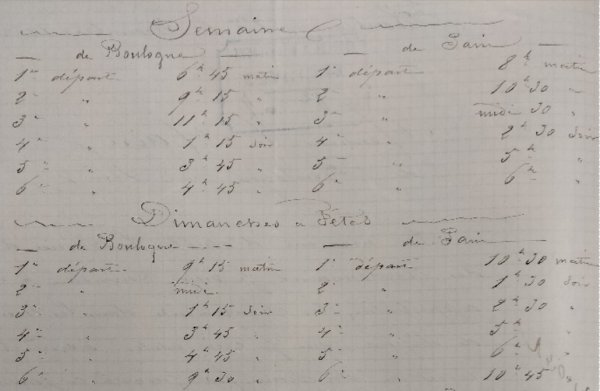 Semaine
de Boulogne de Pain
1er départ 6h 45 matin 1er départ 8h matin
2e " 9h 15 " 2e " 10h 30 "
3e " 11h 15 " 3e " midi 30 "
4e " 1h 15 soir 4e " 2h 30 soir
5e " 3h 45 " 5e " 5h "
6e " 4h 45 " 6e " 6h "
Dimanches & Fêtes
de Boulogne de Pain
1er départ 9h 15 matin 1er départ 10h 30 matin
2e " midi 2e " 1h 30 soir
3e " 1h 15 soir 3e " 2h 30 "
4e " 3h 45 " 4e " 5h "
5e " 4h 45 " 5e " 6h
6e " 9h 30 " 6e " 10h 45